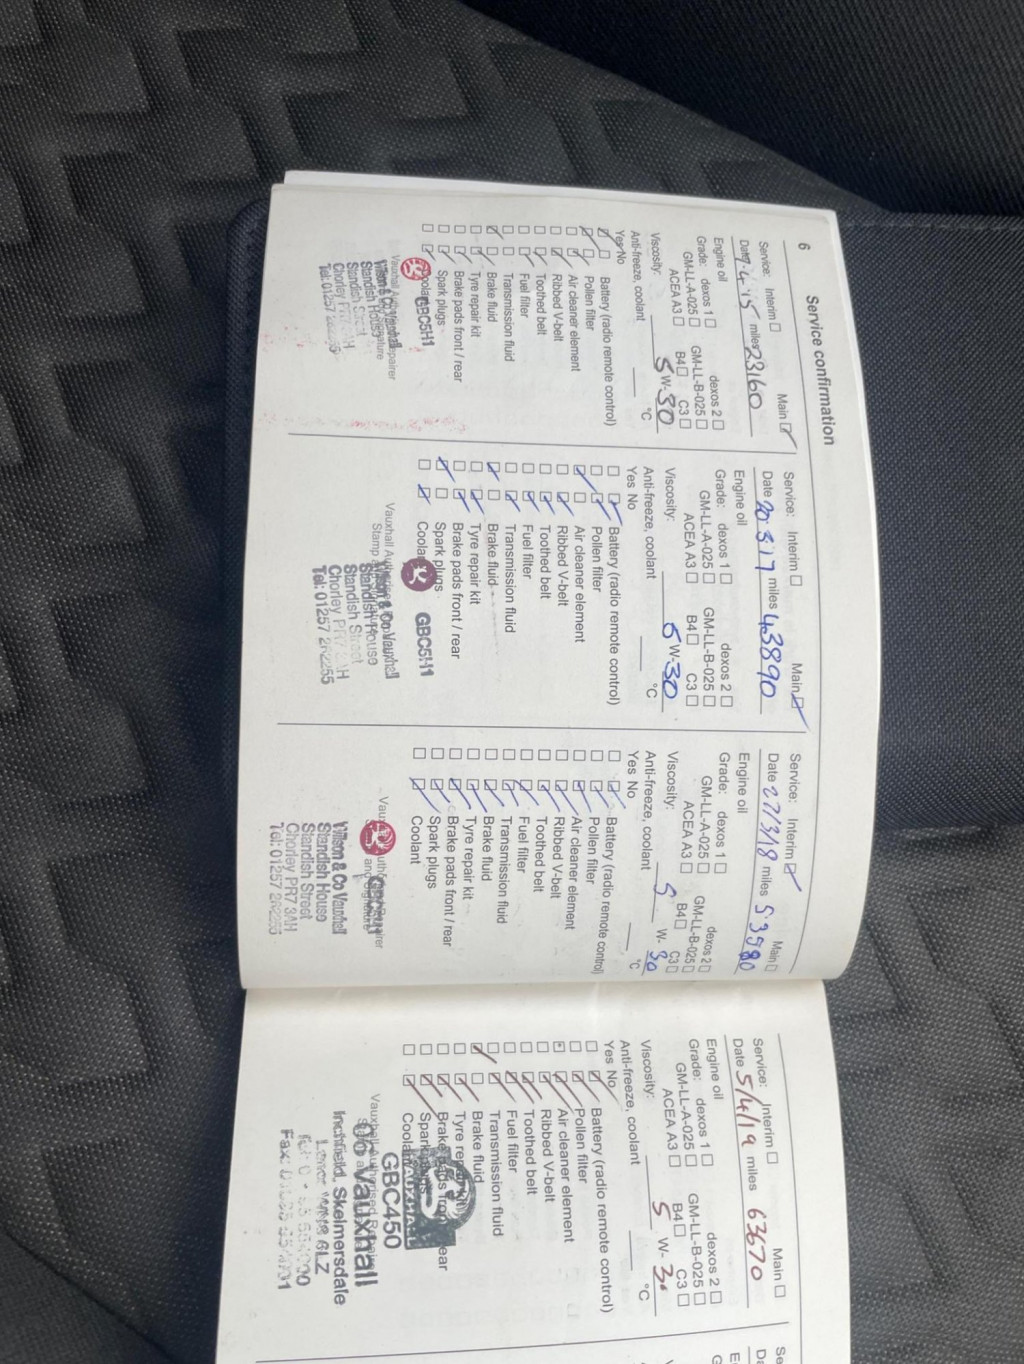 6
Service confirmation
Service: Interim Main
Date 7-4-15 miles 23160
Engine oil
Grade: dexos 1 dexos 2
GM-LL-A-025 GM-LL-B-025
ACEA A3 B4 C3
Viscosity: 5 W-30
Anti-freeze, coolant °C
Yes No
Battery (radio remote control)
Pollen filter
Air cleaner element
Ribbed V-belt
Toothed belt
Fuel filter
Transmission fluid
Brake fluid
Tyre repair kit
Brake pads front / rear
Spark plugs
Coolant GBC5H1
Standish House
Standish Street
Chorley
Tel: 01257
Service: Interim Main
Date 20 3 17 miles 43890
Engine oil
Grade: dexos 1 dexos 2
GM-LL-A-025 GM-LL-B-025
ACEA A3 B4 C3
Viscosity: 5 W-30
Anti-freeze, coolant °C
Yes No
Battery (radio remote control)
Pollen filter
Air cleaner element
Ribbed V-belt
Toothed belt
Fuel filter
Transmission fluid
Brake fluid
Tyre repair kit
Brake pads front / rear
Spark plugs
Coolant GBC5H1
Wilson & Co Vauxhall
Standish House
Standish Street
Chorley PR7 3AH
Tel: 01257 262255
Service: Interim Main
Date 27/3/18 miles 53980
Engine oil
Grade: dexos 1 dexos 2
GM-LL-A-025 GM-LL-B-025
ACEA A3 B4 C3
Viscosity: 5 W-30
Anti-freeze, coolant °C
Yes No
Battery (radio remote control)
Pollen filter
Air cleaner element
Ribbed V-belt
Toothed belt
Fuel filter
Transmission fluid
Brake fluid
Tyre repair kit
Brake pads front / rear
Spark plugs
Coolant
Wilson & Co Vauxhall
Standish House
Standish Street
Chorley PR7 3AH
Tel: 01257 262255
Service: Interim Main
Date 5/4/19 miles 63670
Engine oil
Grade: dexos 1 dexos 2
GM-LL-A-025 GM-LL-B-025
ACEA A3 B4 C3
Viscosity: 5 W-30
Anti-freeze, coolant °C
Yes No
Battery (radio remote control)
Pollen filter
Air cleaner element
Ribbed V-belt
Toothed belt
Fuel filter
Transmission fluid
Brake fluid
Tyre repair kit
Brake pads front / rear
Spark plugs
Coolant VAUXHALL
GBC450
Vauxhall
Skelmersdale
WN8 6LZ
Fax: